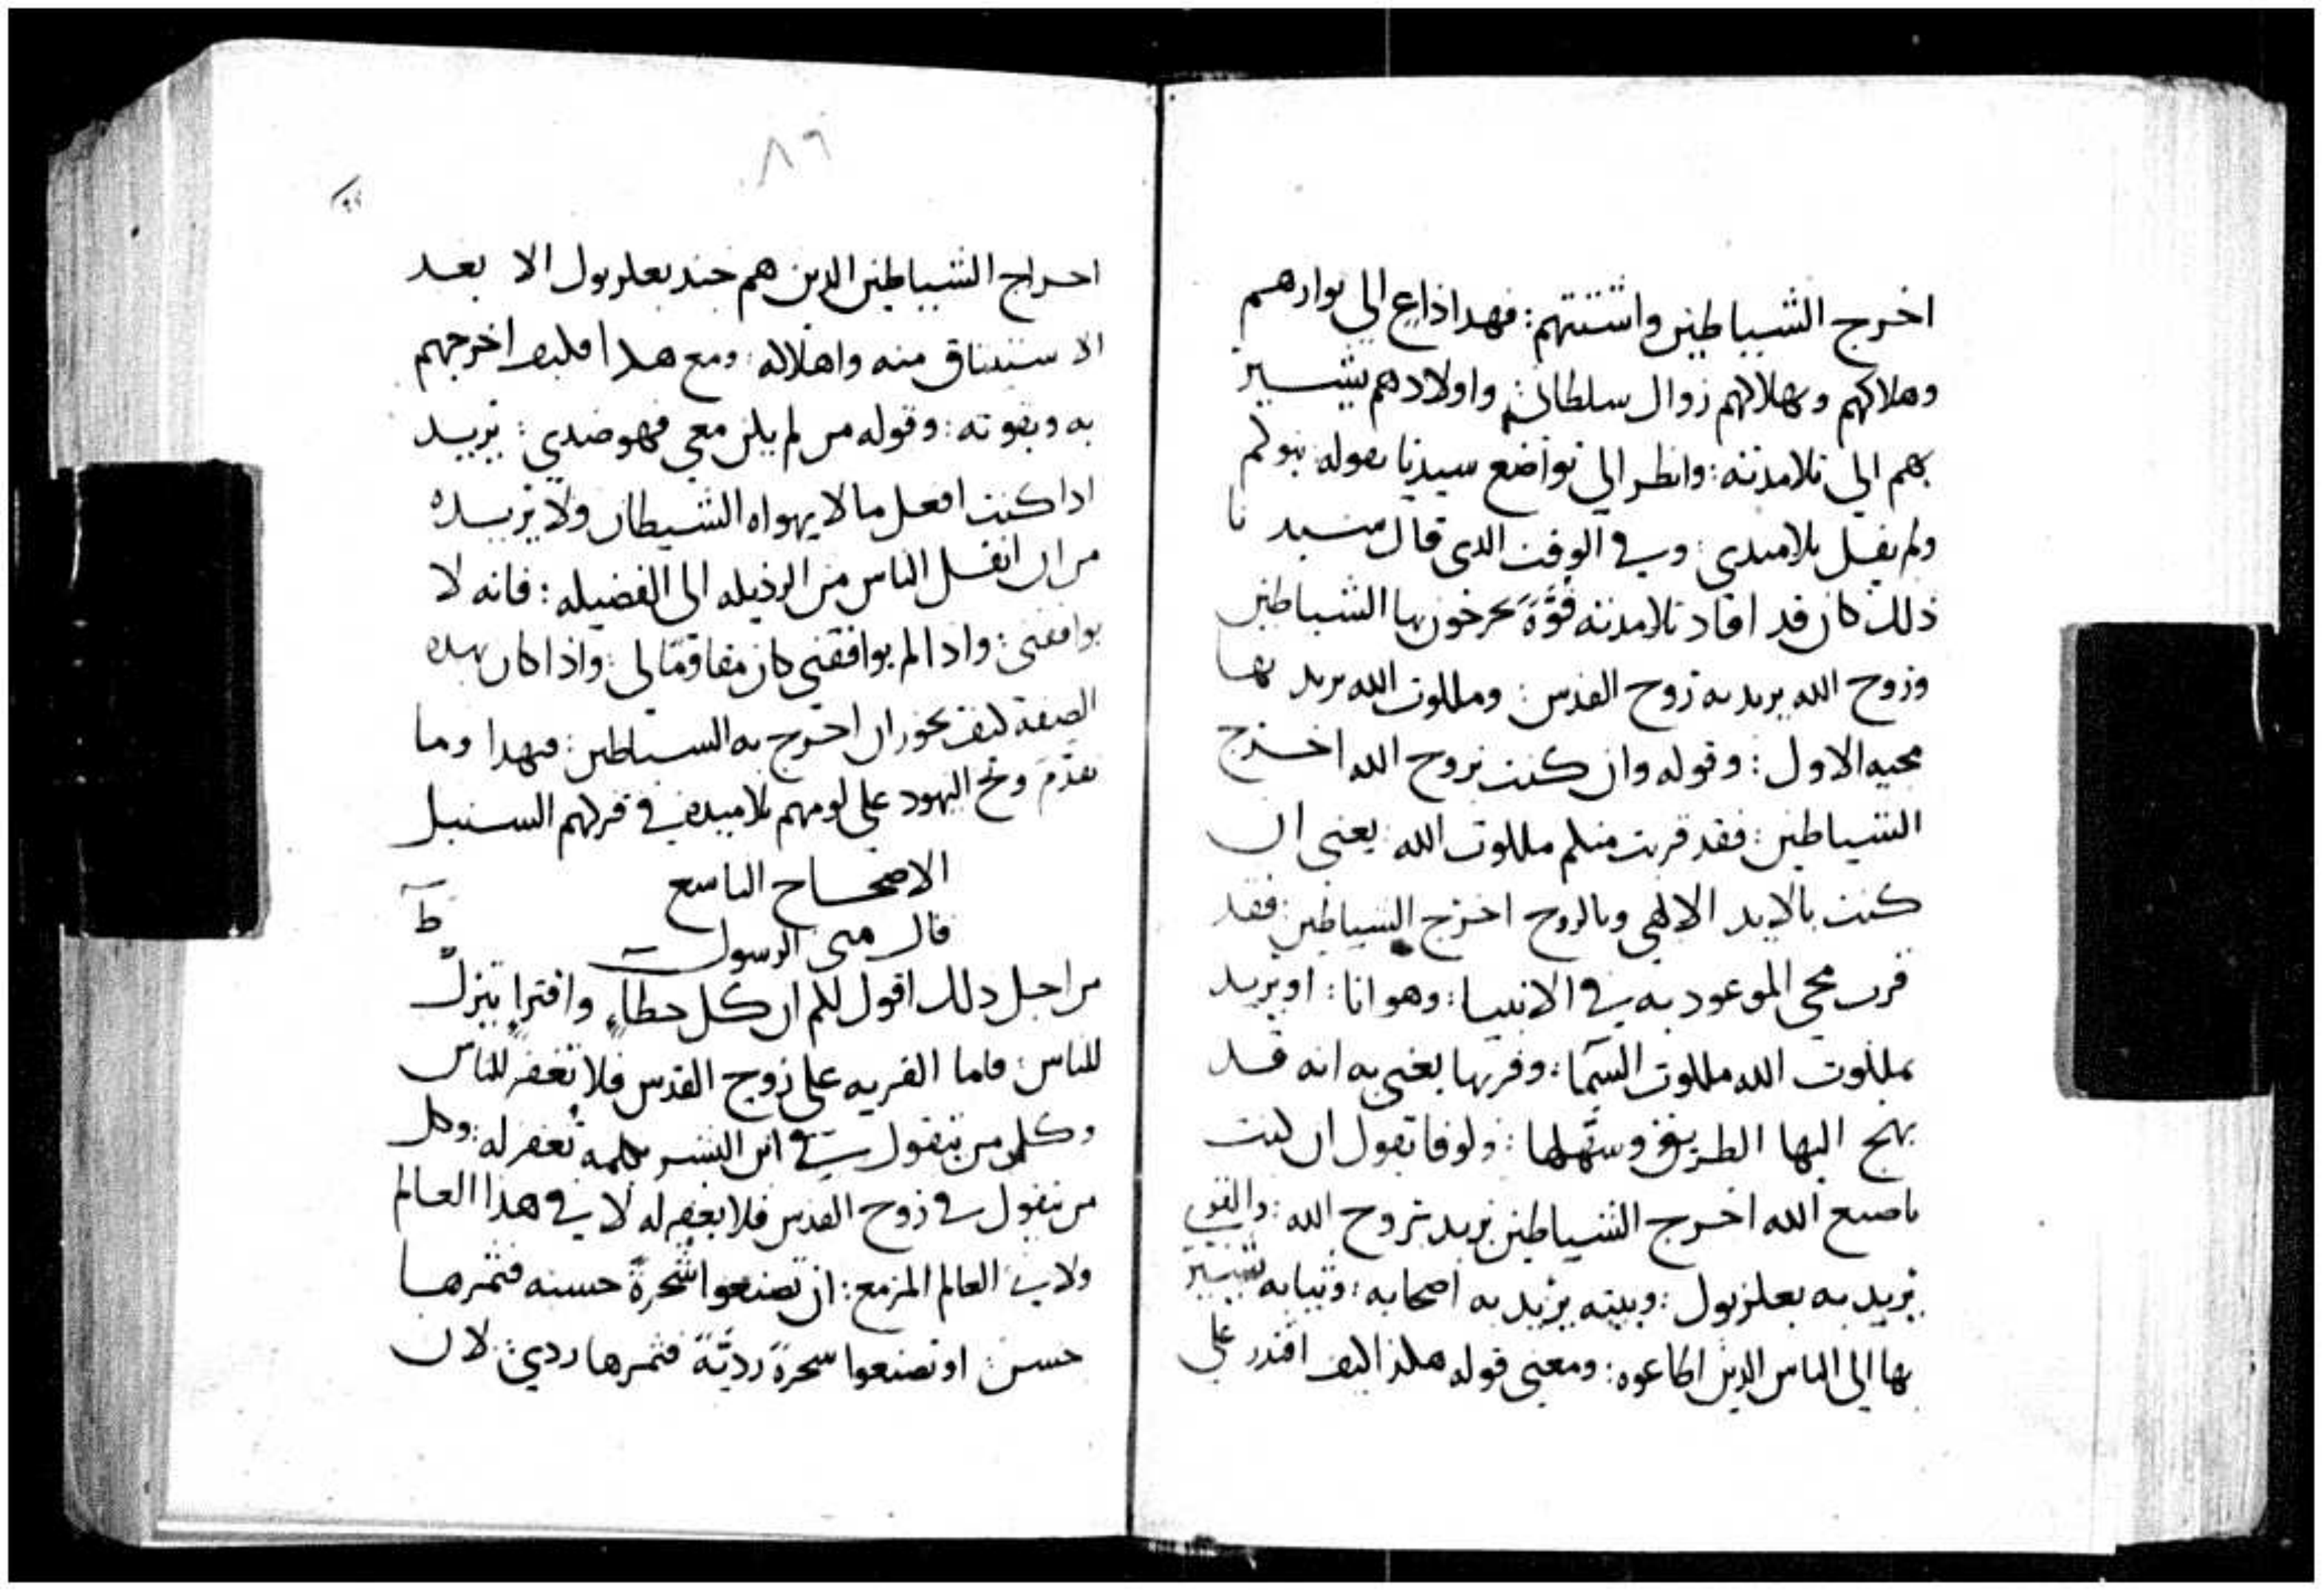 اخرج الشيباطين واشتتهم : فهدا ذاع الي بوارهم
وهلاكهم وبهلاكهم زوال سلطانهم واولادهم يشير
بهم الي تلامدته : وانظر الي تواضع سيدنا بقوله بنوكم
ولم يقل تلاميدي : وفي الوقت الدي قال سيد نا
ذلك كان قد افاد تلامدته قوّةً يخرخون بها الشياطين
وزوح الله يريد به زوح القدس : وملكوت الله يريد بها
مجيه الاول : وقوله وان كنت بروح الله اخرج
الشياطين : فقد قربت منكم ملكوت الله : يعني ان
كنت بالايد الالهي وبالروح اخرج الشياطين : فقد
قرب مجي الموعود به في الانبيا : وهو انا : او يريد
بملكوت الله ملكوت السما : وقربها يعني به انه قد
نهج اليها الطريق وسهلها : ولوقا يقول ان كنت
باصبع الله اخرج الشياطين يريد بروح الله : والقوي
يريد به بعلزبول : وبيته يريد به اصحابه : وثيابه يشير
بها الي الناس الدين اطاعوه : ومعني قوله هكذا كيف اقتدر علي
٨٦
احراج الشيباطين الدين هم جند بعلزبول الا بعد
الاستيثاق منه واهلاله : ومع هدا فكيف اخرجهم
به وبقوته : وقوله من لم يكن معي فهو ضدي : يريد
ادا كنت افعل ما لا يهواه الشيطان ولا يريده
من ان انقل الناس من الرذيله الى الفضيله : فانه لا
يوافقني : واذا لم يوافقني كان مقاومًا لي : واذا كان بهده
الصفة كيف يجوز ان اخرج به السياطين : فبهدا وما
تقدّم وبخ اليهود علي لومهم تلاميده في فركهم السنبل
الاصحاح التاسع
ط
قال متى الرسول
من اجل دلك اقول لكم ان كل خطاءٍ وافترا يترك
للناس : فاما الفريه على زوح القدس فلا تغفر للناس
وكل من يقول في ابن البشر كلمه تُغفر له : وكل
من يقول في زوح القدس فلا يغفر له لا في هذا العالم
ولا في العالم المزمع : ان تصنعوا شجرةً حسنه فثمرها
حسن : او تصنعوا سجرةً رديّةً فثمرها ردي : لان